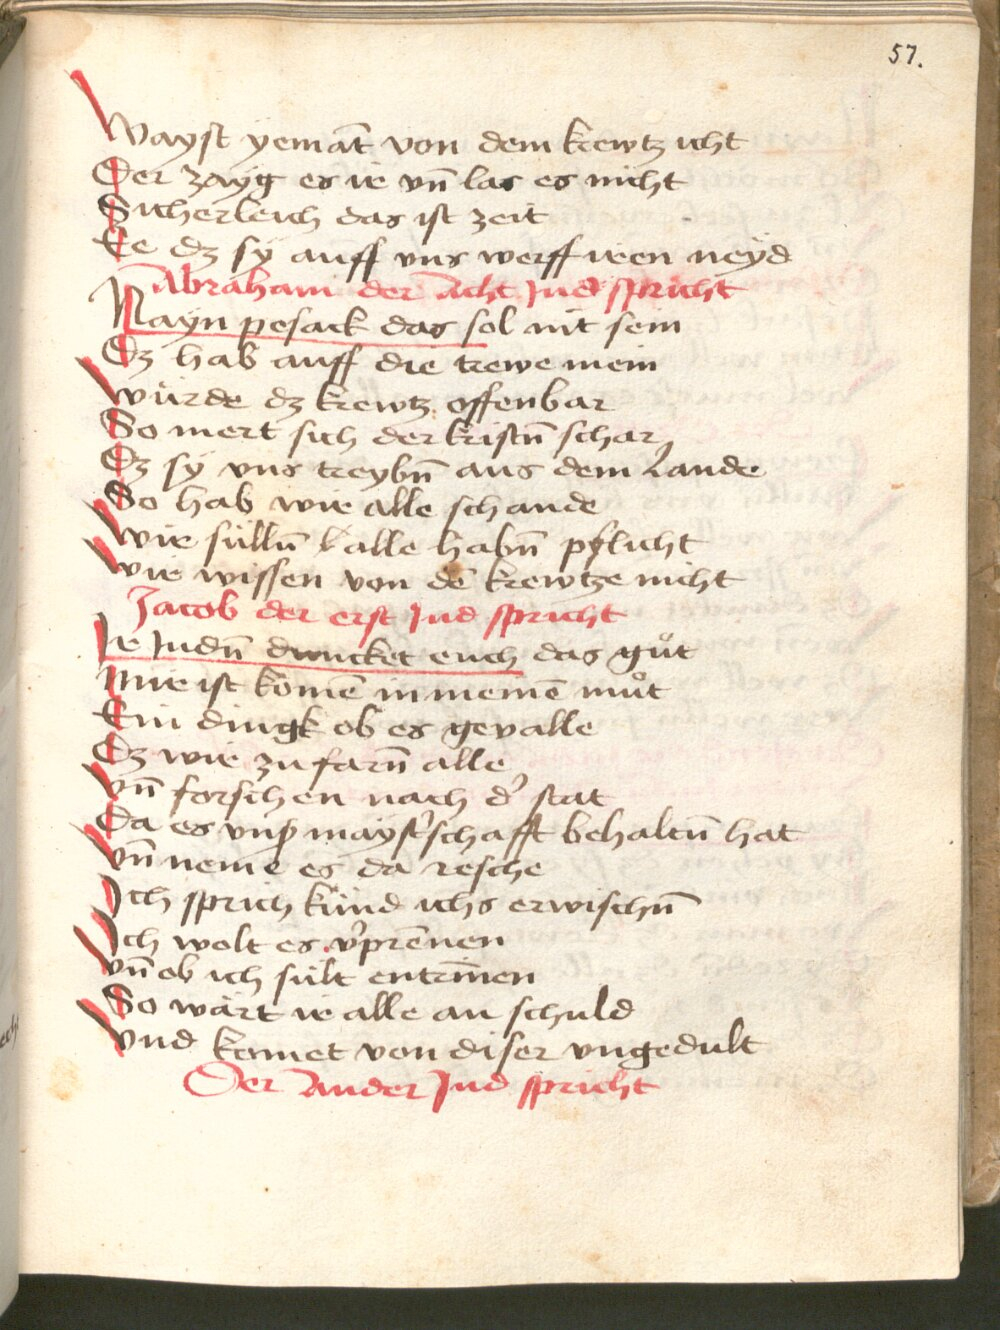 57.
Wayst yemāt von dem krewtz icht
Der zayg es ie vn̄ las es nicht
Sicherleich das ist zeit
Ee dz sy auff vns werff iren neyd
Abraham der Acht Jud spricht
Nayn pesack das sol nit sein
Dz hab auff die trewe mein
Würde dz krewtz offenbar
So mert sich der kristn̄ schar
Dz sy vns treybn̄ aus dem Lande
So hab wir alle schande
Wir sülln̄ alle habn̄ pflicht
Wir wissen von dē krewtze nicht
Jacob der erst Jud spricht
Ir Judn̄ duncket euch das gůt
Mir ist komē in meinē můt
Ein dingk ob es gevalle
Dz wir zu farn̄ alle
Vn̄ forschen nach d' stat
Da es vnß mayst'schafft behaltn̄ hat
Vn̄ neme es da resche
Ich sprich künd ichs erwischn̄
Ich wolt es v'prēnen
Vn̄ ob ich sült entrīnen
So wärt ir alle an schuld
Vnd komet von diser vngedult
Der Ander Jud spricht